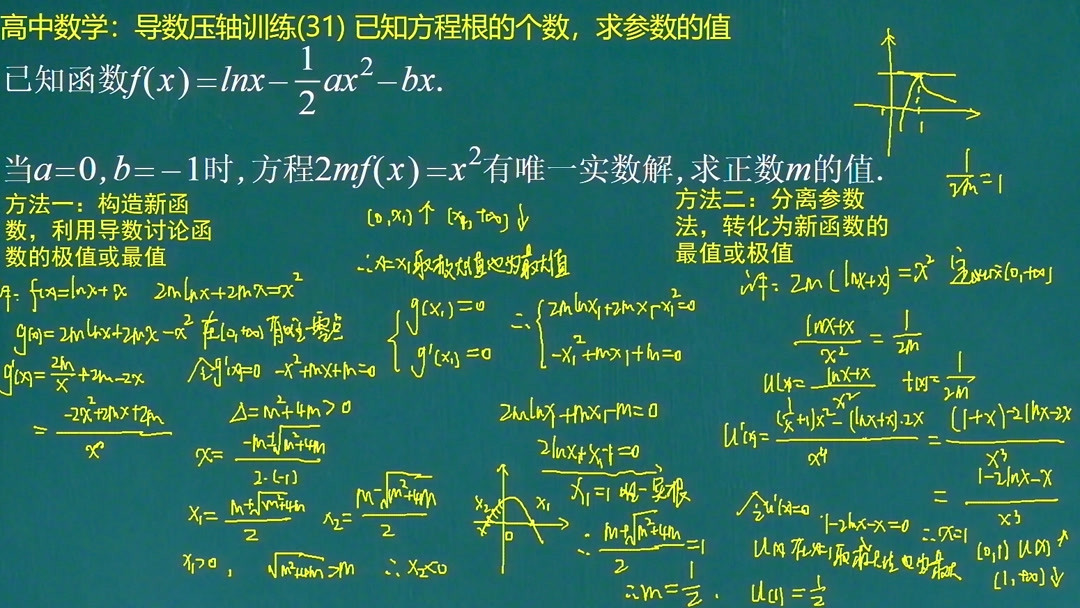 高中数学：导数压轴训练(31) 已知方程根的个数，求参数的值
已知函数f(x)=lnx-1/2ax²-bx.
当a=0,b=-1时,方程2mf(x)=x²有唯一实数解,求正数m的值.
1/2m=1
1
方法一：构造新函
数，利用导数讨论函
数的极值或最值
f(x)=lnx+x 2mlnx+2mx=x²
g(x)=2mlnx+2mx-x² 在(0,+∞)有唯一零点
g'(x)=2m/x+2m-2x 令g'(x)=0 -x²+mx+m=0
=(-2x²+2mx+2m)/x
Δ=m²+4m>0
x=(-m±√(m²+4m))/(2·(-1))
x₁=(m+√(m²+4m))/2 x₂=(m-√(m²+4m))/2
x₁>0, √(m²+4m)>m ∴x₂<0
(0,x₁)↑ (x₁,+∞)↓
∴x=x₁取极大值也为最大值
{g(x₁)=0 ∴{2mlnx₁+2mx₁-x₁²=0
g'(x₁)=0 -x₁²+mx₁+m=0
2mlnx₁+mx₁-m=0
2lnx₁+x₁-1=0
x₁=1 唯一实根
x₂ x₁
0
∴(m+√(m²+4m))/2=1
∴m=1/2.
方法二：分离参数
法，转化为新函数的
最值或极值
2m(lnx+x)=x² 定义域(0,+∞)
(lnx+x)/x²=1/2m
u(x)=(lnx+x)/x² t(x)=1/2m
u'(x)=((1/x+1)x²-(lnx+x)·2x)/x⁴=((1+x)-2lnx-2x)/x³
=(1-2lnx-x)/x³
令u'(x)=0 1-2lnx-x=0 ∴x=1
(0,1) u(x)↑
(1,+∞)↓
u(x)在x=1取极大值也为最大
u(1)=1/2